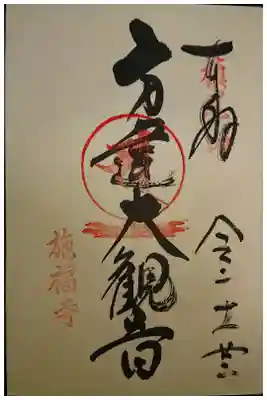 奉拝
令二
方違大観音
施福寺